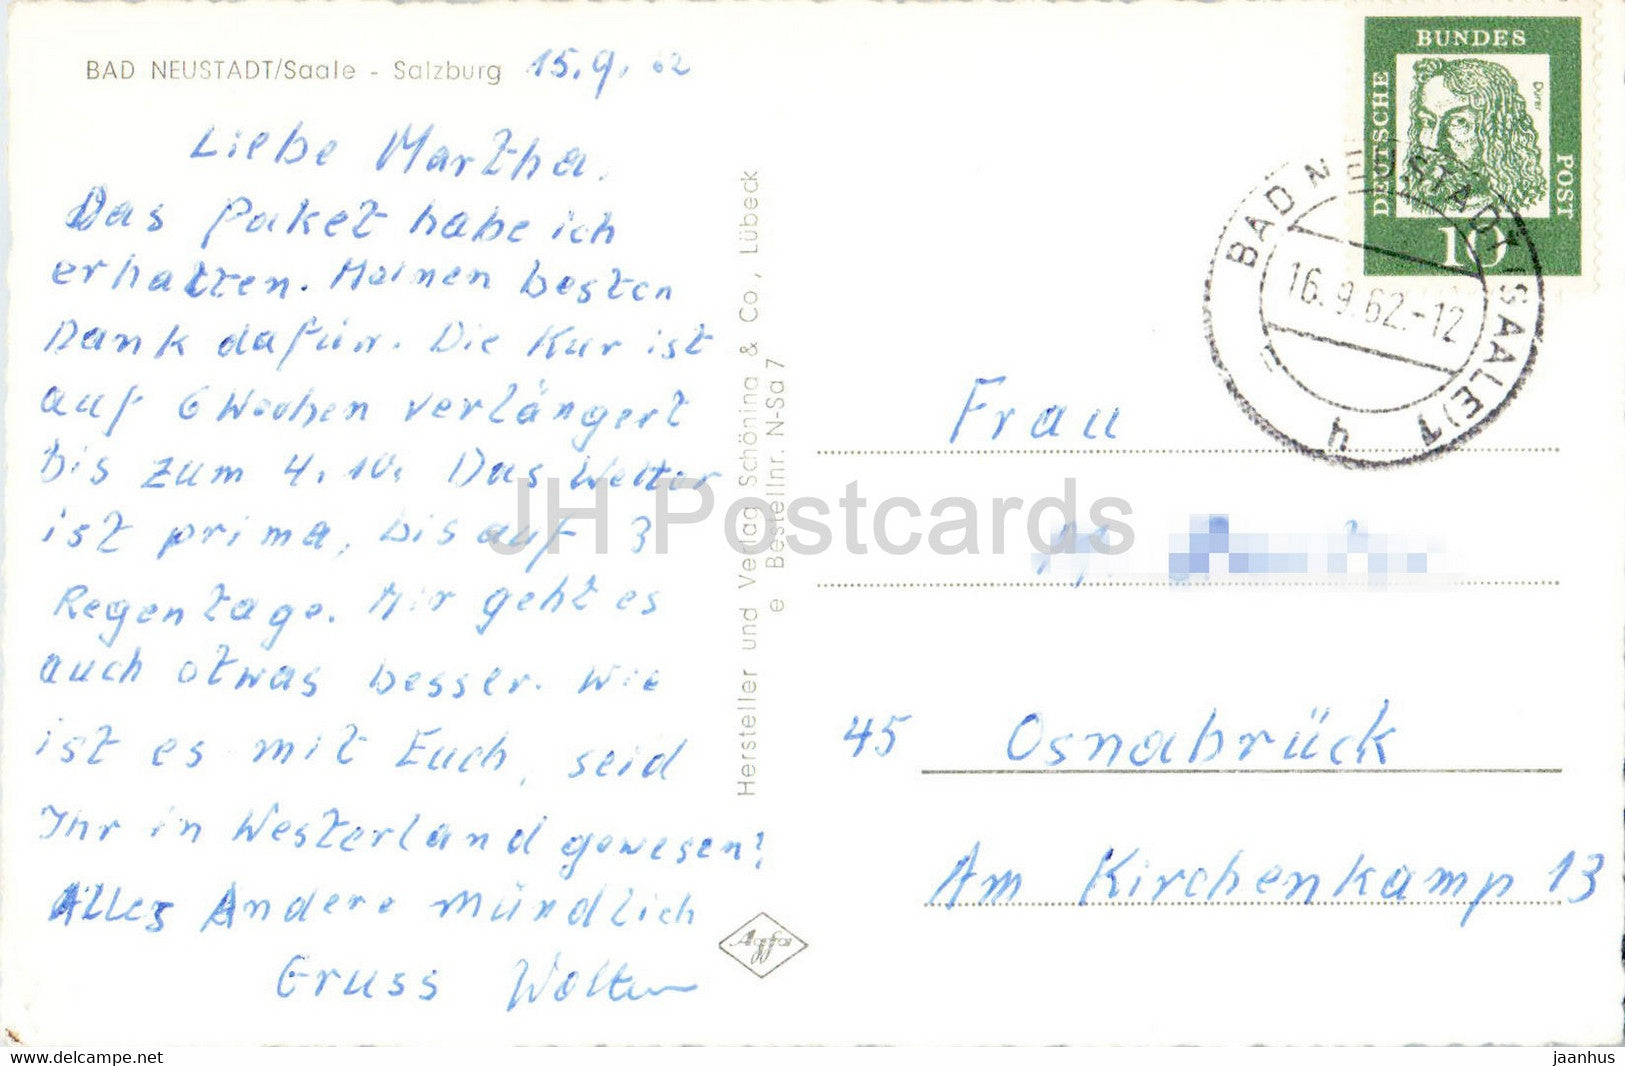 BAD NEUSTADT/Saale - Salzburg 15.9.62
Liebe Martha.
Das Paket habe ich
erhalten. Meinen besten
Dank dafür. Die Kur ist
auf 6 Wochen verlängert
bis zum 4.10. Das Wetter
ist prima, bis auf 3
Regentage. Mir geht es
auch etwas besser. Wie
ist es mit Euch, seid
Ihr in Westerland gewesen?
Alles Andere mündlich
Gruss Walter
Hersteller und Verlag Schöning & Co., Lübeck
e Bestellnr. N-Sa 7
Agfa
DEUTSCHE
BUNDES
POST
Dürer
10
BAD NEUSTADT (SAALE) 1
16.9.62.-12
h
Frau
45 Osnabrück
Am Kirchenkamp 13
JH Postcards
www.delcampe.net
jaanhus